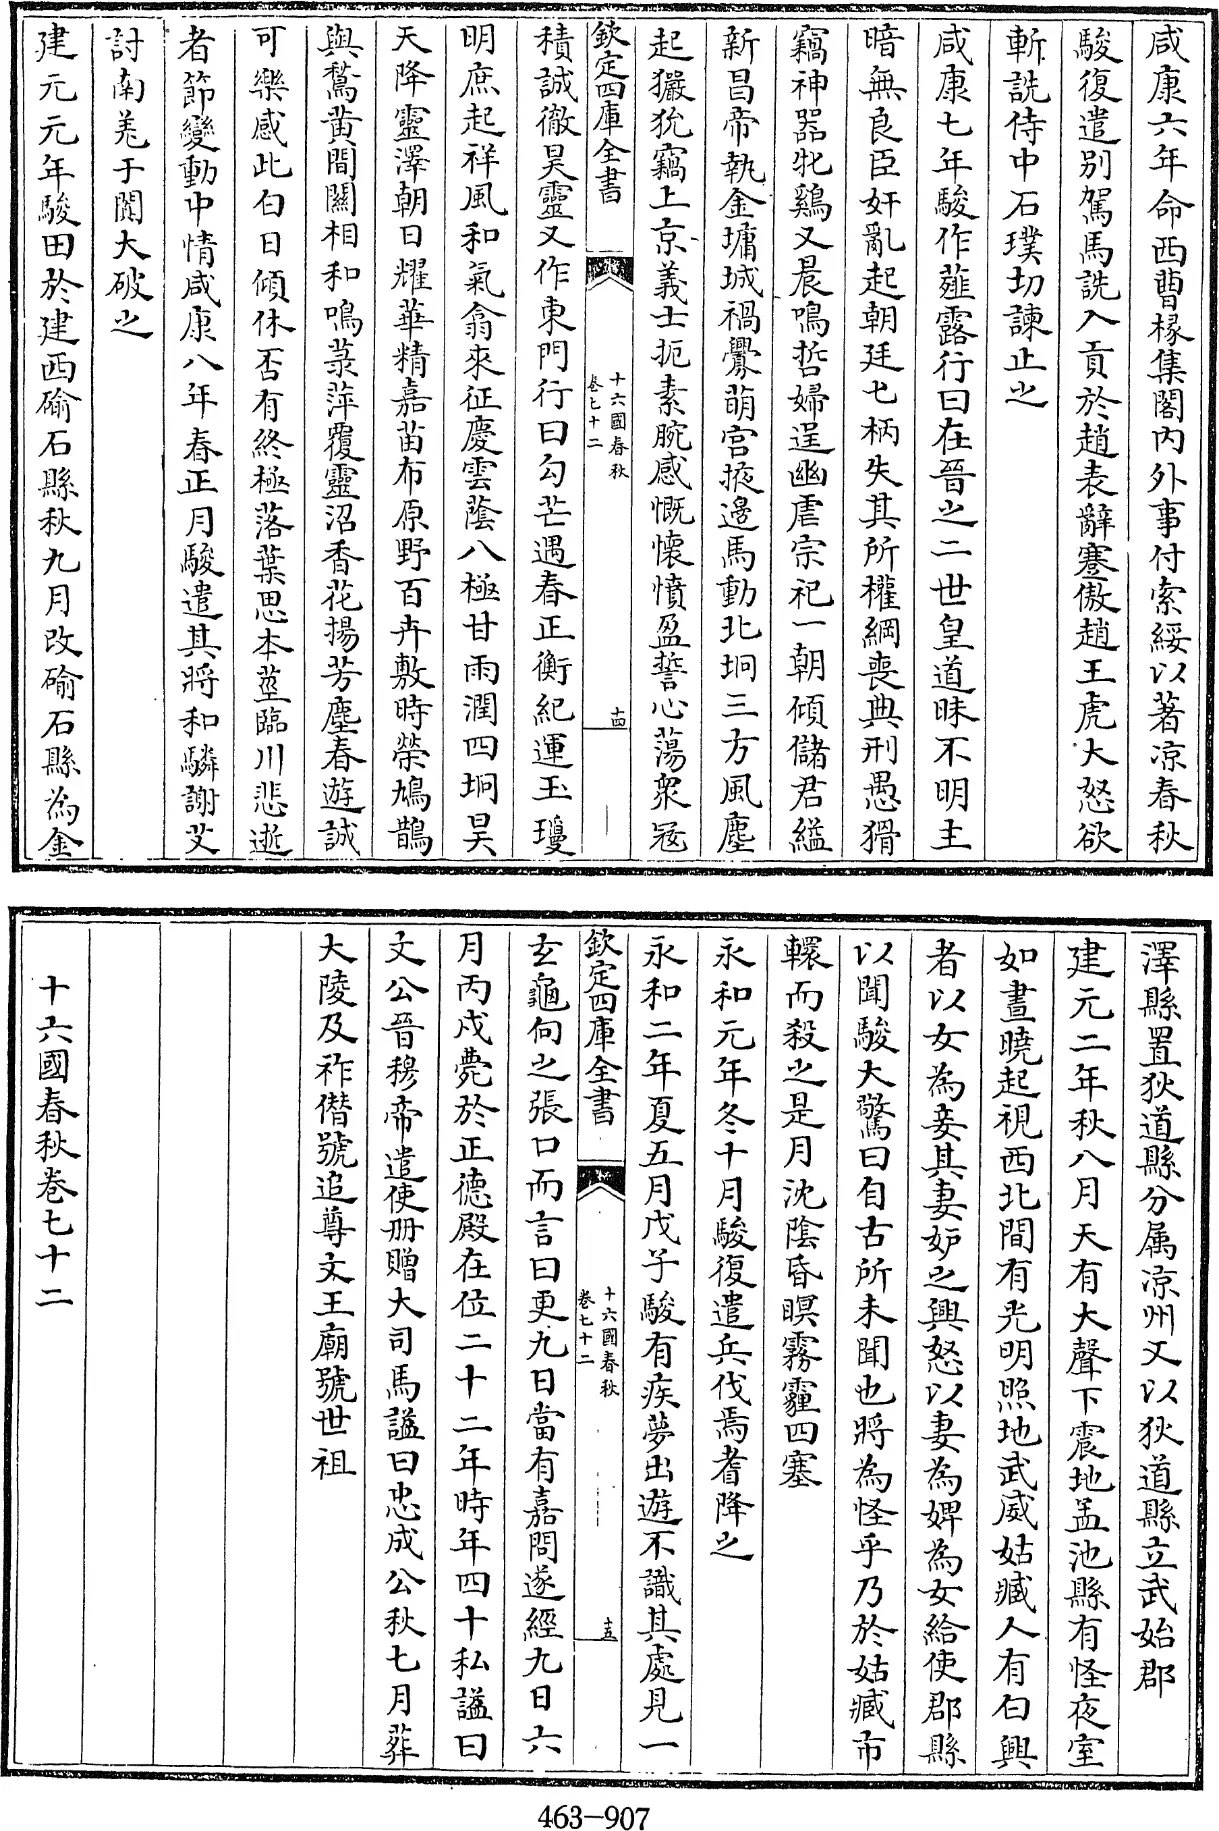 咸康六年命西曹掾集閣内外事付索綏以著凉春秋
駿復遣别駕馬詵入貢於趙表辭蹇傲趙王虎大怒欲
斬詵侍中石璞切諫止之
咸康七年駿作薤露行曰在晉之二世皇道昧不明主
暗無良臣奸亂起朝廷七柄失其所權綱喪典刑愚猾
竊神器牝鷄又晨鳴哲婦逞幽虐宗祀一朝傾儲君縊
新昌帝執金墉城禍釁萌宫掖邊馬動北坰三方風塵
起玁狁竊上京義士扼素腕感慨懷憤盈誓心蕩衆寇
欽定四庫全書
十六國春秋
卷七十二
十四
積誠徹昊靈又作東門行曰勾芒遇春正衡紀運玉瓊
明庶起祥風和氣翕來征慶雲蔭八極甘雨潤四坰昊
天降靈澤朝日耀華精嘉苗布原野百卉敷時榮鳩鵲
與鶖黄間關相和鳴菉萍覆靈沼香花揚芳塵春遊誠
可樂感此白日傾休否有終極落葉思本莖臨川悲逝
者節變動中情咸康八年春正月駿遣其將和驎謝艾
討南羌于闐大破之
建元元年駿田於建西硊石縣秋九月改硊石縣為金
澤縣置狄道縣分属凉州又以狄道縣立武始郡
建元二年秋八月天有大聲下震地孟池縣有怪夜室
如晝曉起視西北間有光明照地武威姑臧人有白興
者以女為妾其妻妒之興怒以妻為婢為女給使郡縣
以聞駿大驚曰自古所未聞也將為怪乎乃於姑臧市
轘而殺之是月沈陰昏暝霧霾四塞
永和元年冬十月駿復遣兵伐焉耆降之
永和二年夏五月戊子駿有疾夢出遊不識其處見一
欽定四庫全書
十六國春秋
卷七十二
十五
玄龜向之張口而言曰更九日當有嘉問遂經九日六
月丙戌薨於正德殿在位二十二年時年四十私諡曰
文公晉穆帝遣使册贈大司馬諡曰忠成公秋七月葬
大陵及祚僣號追尊文王廟號世祖
十六國春秋卷七十二
463-907